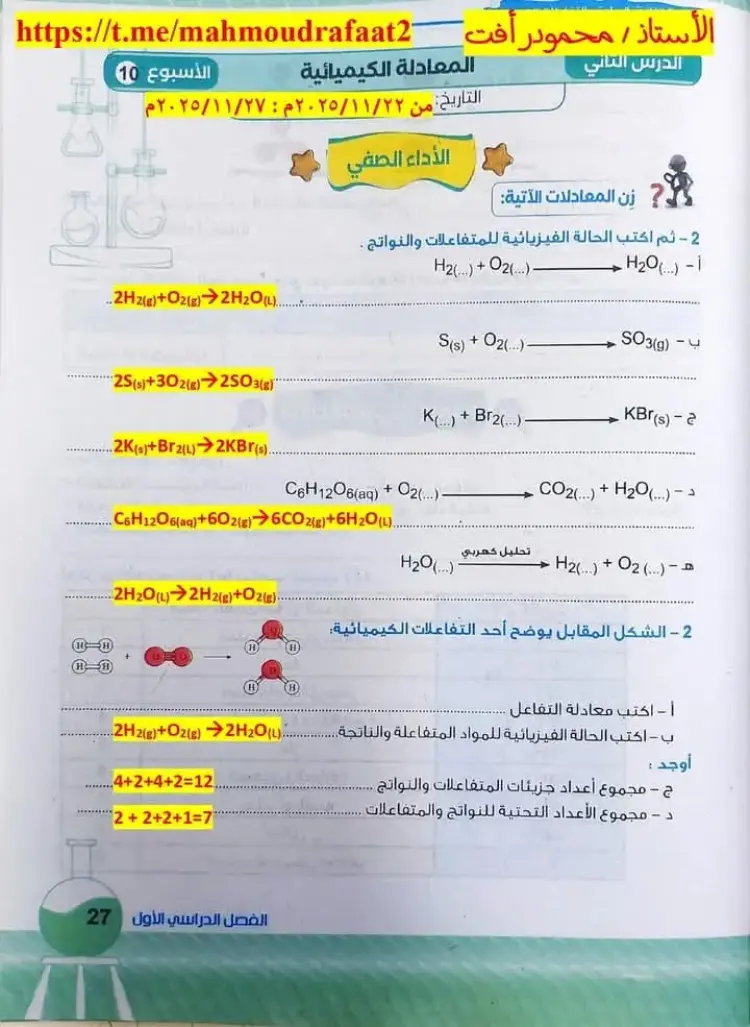 الأستاذ / محمود رأفت https://t.me/mahmoudrafaat2
الدرس الثاني المعادلة الكيميائية الأسبوع 10
التاريخ: من ٢٠٢٥/١١/٢٢م : ٢٠٢٥/١١/٢٧م
الأداء الصفي
زن المعادلات الآتية:
2 - ثم اكتب الحالة الفيزيائية للمتفاعلات والنواتج .
أ - H2(...) + O2(...) → H2O(...)
2H2(g)+O2(g)→2H2O(L)
ب - S(s) + O2(...) → SO3(g)
2S(s)+3O2(g)→2SO3(g)
ج - K(...) + Br2(...) → KBr(s)
2K(s)+Br2(L)→2KBr(s)
د - C6H12O6(aq) + O2(...) → CO2(...) + H2O(...)
C6H12O6(aq)+6O2(g)→6CO2(g)+6H2O(L)
هـ - H2O(...) تحليل كهربي → H2(...) + O2 (...)
2H2O(L)→2H2(g)+O2(g)
2 - الشكل المقابل يوضح أحد التفاعلات الكيميائية:
H H + O O → H O H
H H H O H
أ - اكتب معادلة التفاعل
ب - اكتب الحالة الفيزيائية للمواد المتفاعلة والناتجة. 2H2(g)+O2(g) →2H2O(L)
أوجد :
ج - مجموع أعداد جزيئات المتفاعلات والنواتج 4+2+4+2=12
د - مجموع الأعداد التحتية للنواتج والمتفاعلات 2 + 2+2+1=7
الفصل الدراسي الأول 27